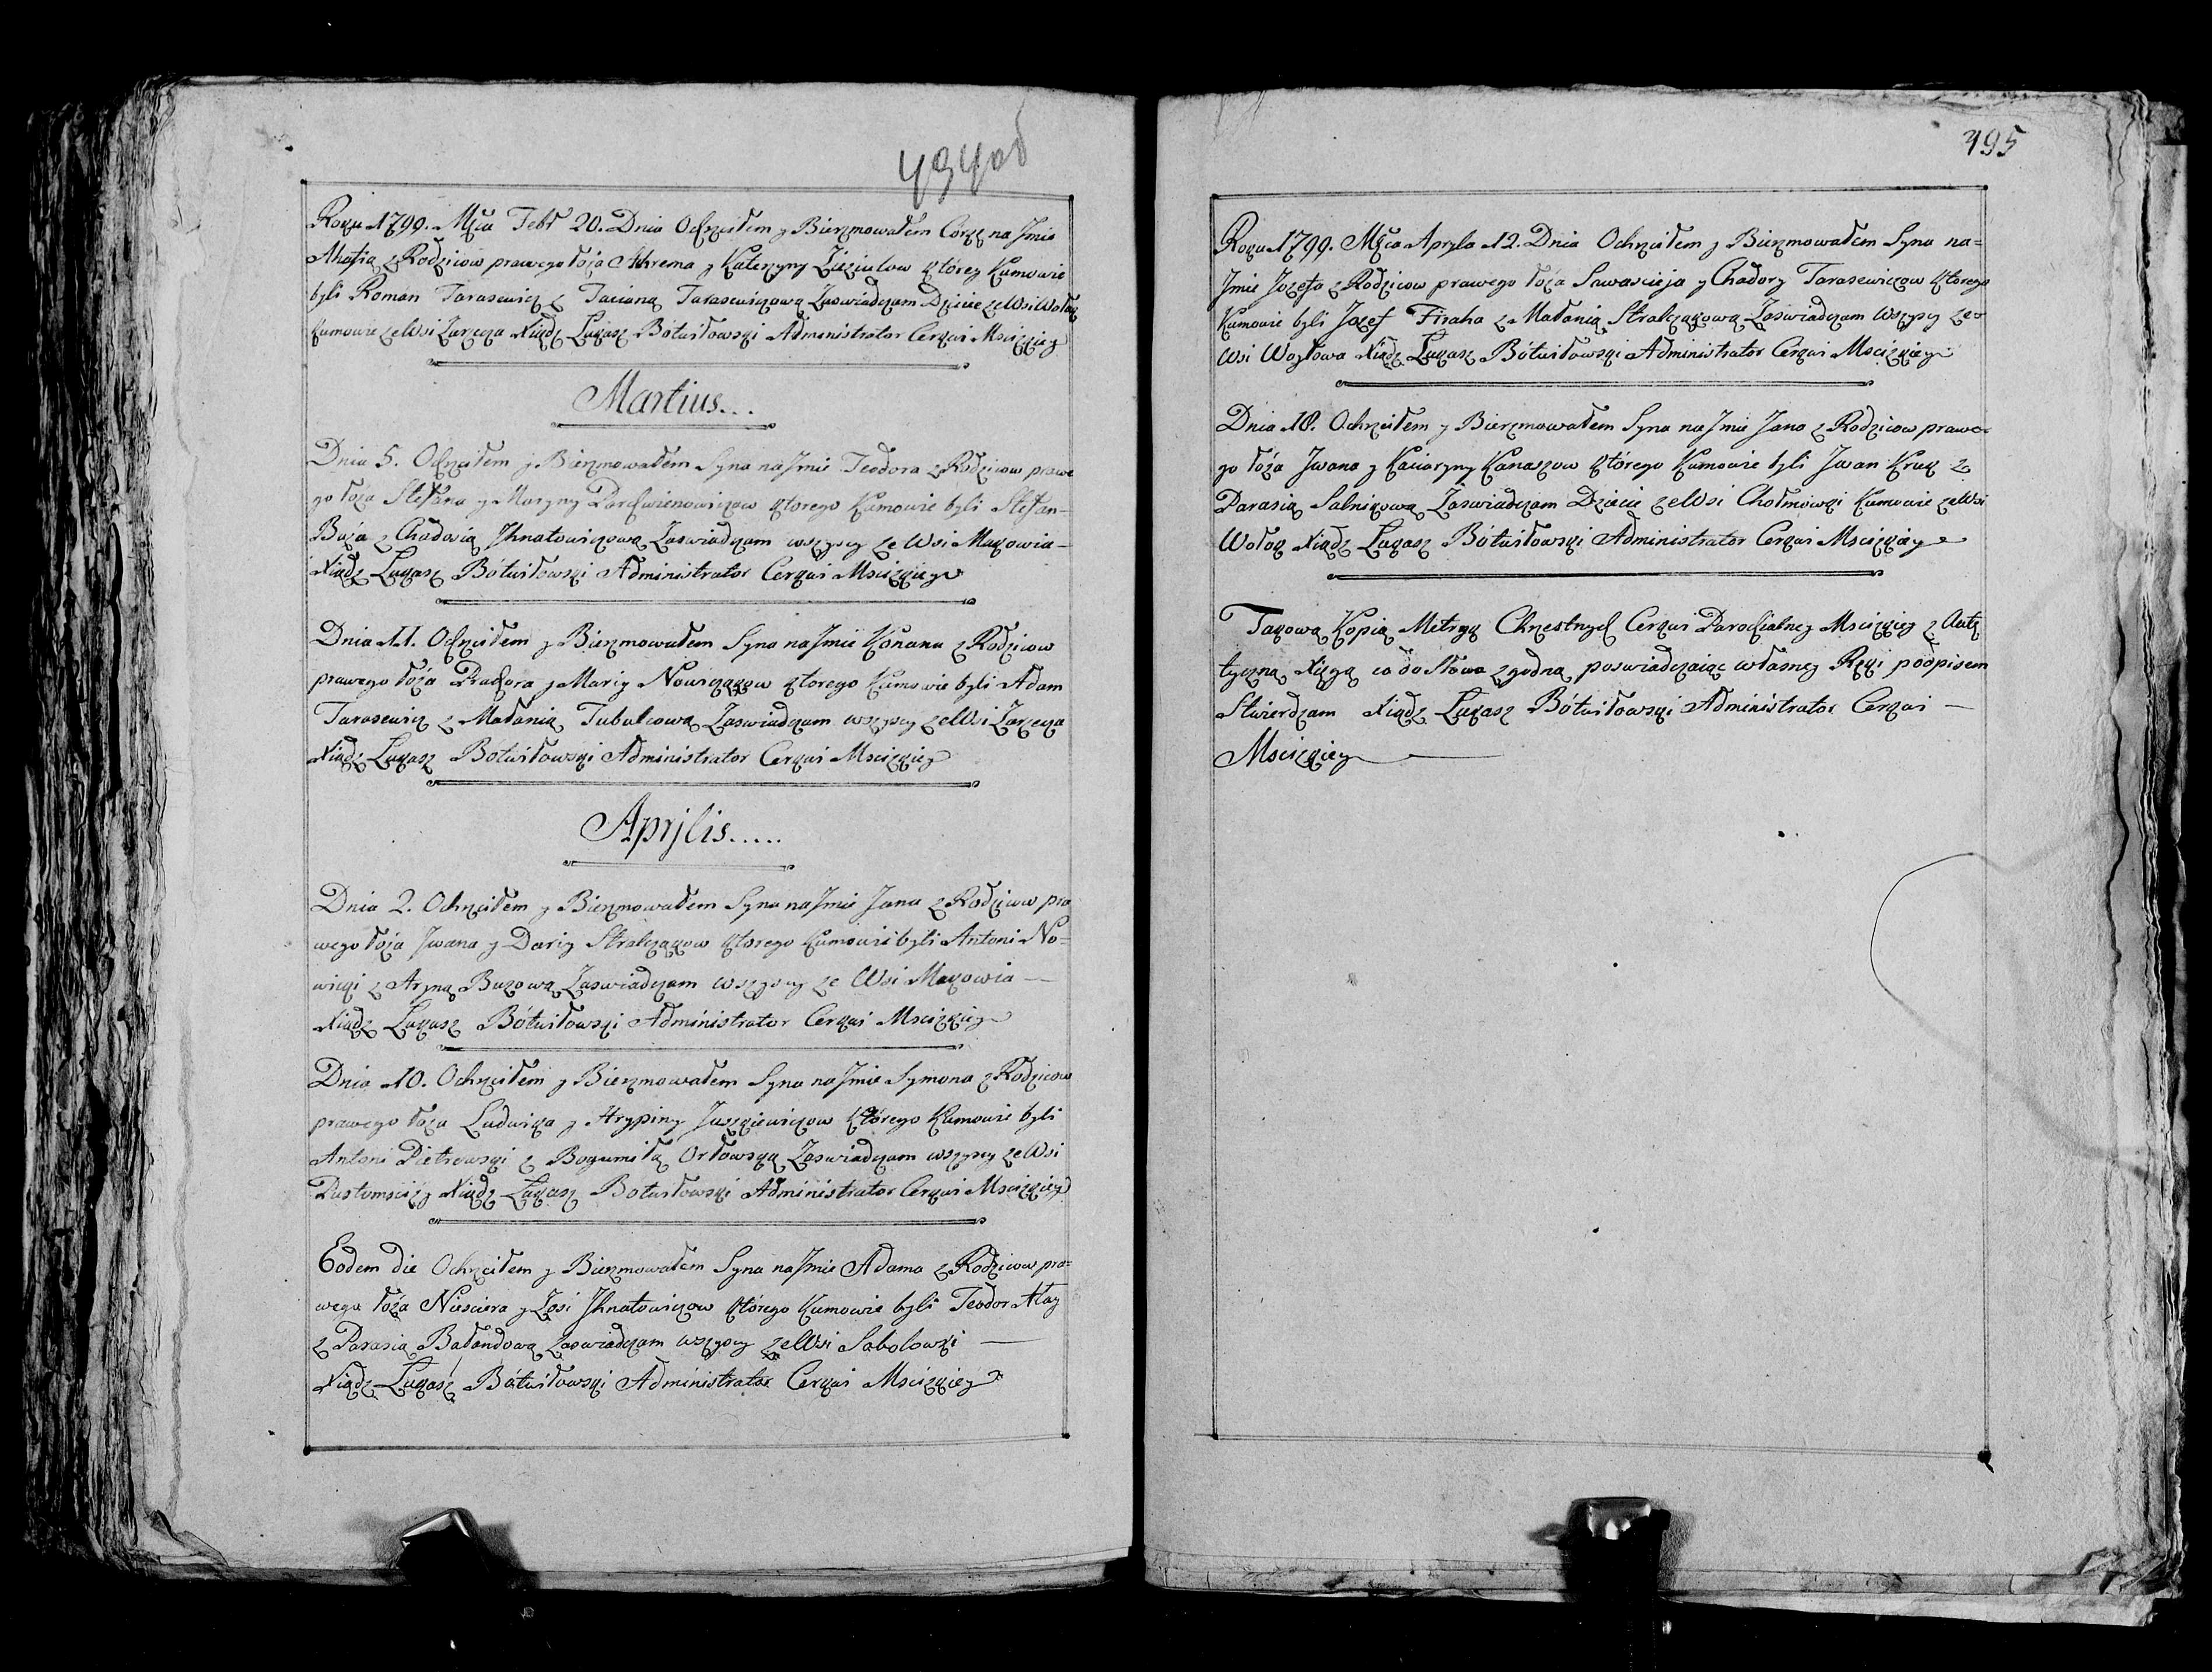 494об
Roku 1799. Mca Febr 20. Dnia Ochrzciłem y Bierzmowałem Corkę na Jmie
Ahafią z Rodzicow prawego łoża Achrema y Kateryny Zieziulow ktorey Kumowie
byli Roman Tarasewicz z Tacianą Tarasewiczową Zaswiadczam Dziecie ze Wsi Wołok
Kumowie ze Wsi Zarzecza Xiądz Łukasz Bótwiłowski Administrator Cerkwi Mscizkiey
Martius...
Dnia 5. Ochrzciłem y Bierzmowałem Syna na Jmie Teodora z Rodzicow prawe
go łoża Stefana y Maryny Parchwienowiczow ktorego Kumowie byli Stefan-
Buza z Chadosią Jhnatowiczową Zaswiadczam wszyscy ze Wsi Makowia-
Xiądz Łukasz Bótwiłowski Administrator Cerkwi Mscizkiey
Dnia 11. Ochrzciłem y Bierzmowałem Syna na Jmie Konana z Rodzicow
prawego łoża Prachora y Maryi Nowickow ktorego Kumowie byli Adam
Tarasewicz z Małanią Tubulcową Zaswiadczam wszyscy ze Wsi Zarzecza
Xiądz Łukasz Botwiłowski Administrator Cerkwi Mscizkiey
Aprjlis.....
Dnia 2. Ochrzciłem y Bierzmowałem Syna na Jmie Jana z Rodzicow pra
wego łoża Jwana y Daryi Stralczakow ktorego Kumowie byli Antoni No=
wicki z Aryną Buzową Zaswiadczam wszyscy ze Wsi Makowia —
Xiądz Łukasz Bótwiłowski Administrator Cerkwi Mscizkiey
Dnia 10. Ochrzciłem y Bierzmowałem Syna na Jmie Symona z Rodzicow
prawego łoża Ludwika y Hrypiny Juszkiewiczow którego Kumowie byli
Antoni Pietrowski z Bogumiłą Orłowską Zaswiadczam wszyscy ze Wsi
Pustomsciży Xiądz Łukasz Botwiłowski Administrator Cerkwi Mscizkiey
Eodem die Ochrzciłem y Bierzmowałem Syna na Jmie Adama z Rodzicow pra=
wego łoża Niesciera y Zosi Jhnatowiczow którego Kumowie byli Teodor Atay
z Parasią Bałandową zaswiadczam wszyscy ze Wsi Sabolowki —
Xiądz Łukasz Bótwiłowski Administrator Cerkwi Mscizkiey
495
Roku 1799. Mca Apryla 12. Dnia Ochrzciłem y Bierzmowałem Syna na=
Jmie Jozefa z Rodzicow prawego łoża Sawascieja y Chadory Tarasewiczow ktorego
Kumowie byli Jozef Firaha z Małanią Stralczakową Zaswiadczam wszyscy ze
Wsi Woytowa Xiądz Łukasz Bótwiłowski Administrator Cerkwi Mscizkiey
Dnia 18. Ochrzciłem y Bierzmowałem Syna na Jmie Jana z Rodzicow prawe=
go łoża Jwana y Kaciaryny Kanaszow którego Kumowie byli Jwan Kruk z
Parasią Salnikową Zaswiadczam Dziecie ze Wsi Chołmowki Kumowie ze Wsi
Wołok Xiądz Łukasz Bótwiłowski Administrator Cerkwi Mscizkiey
Takową Kopią Metryk Chrzestnych Cerkwi Parochialney Mscizkiey z Autę
tyczną Xięgą co do Słowa zgodną poswiadczaiąc własney Ręki podpisem
Stwierdzam Xiądz Łukasz Bótwiłowski Administrator Cerkwi —
Mscizkiey —